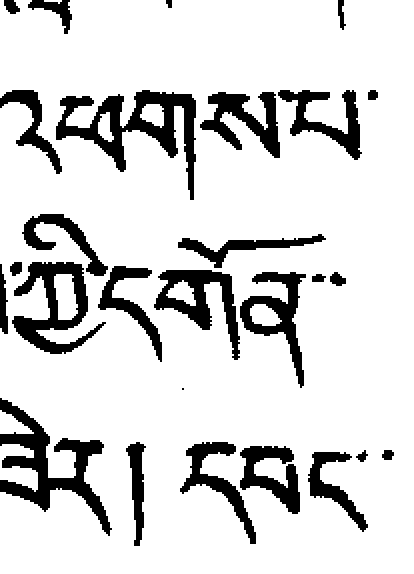 འཕགས་པ་
ཀྱི་དགོན་
ཟེར། དབང་